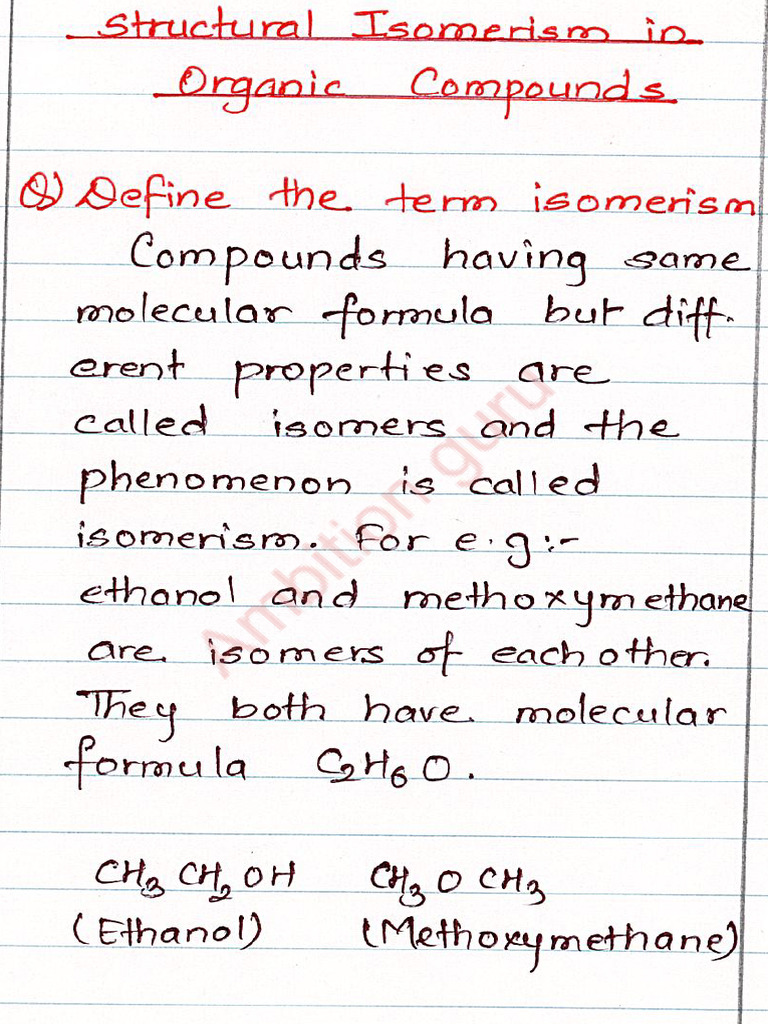 Structural Isomerism in
Organic Compounds
Q) Define the term isomerism
Compounds having same
molecular formula but diff-
erent properties are
called isomers and the
phenomenon is called
isomerism. For e.g:-
ethanol and methoxymethane
are isomers of each other.
They both have molecular
formula C₂H₆O.
CH₃ CH₂ OH CH₃ O CH₃
(Ethanol) (Methoxymethane)
Ambition guru